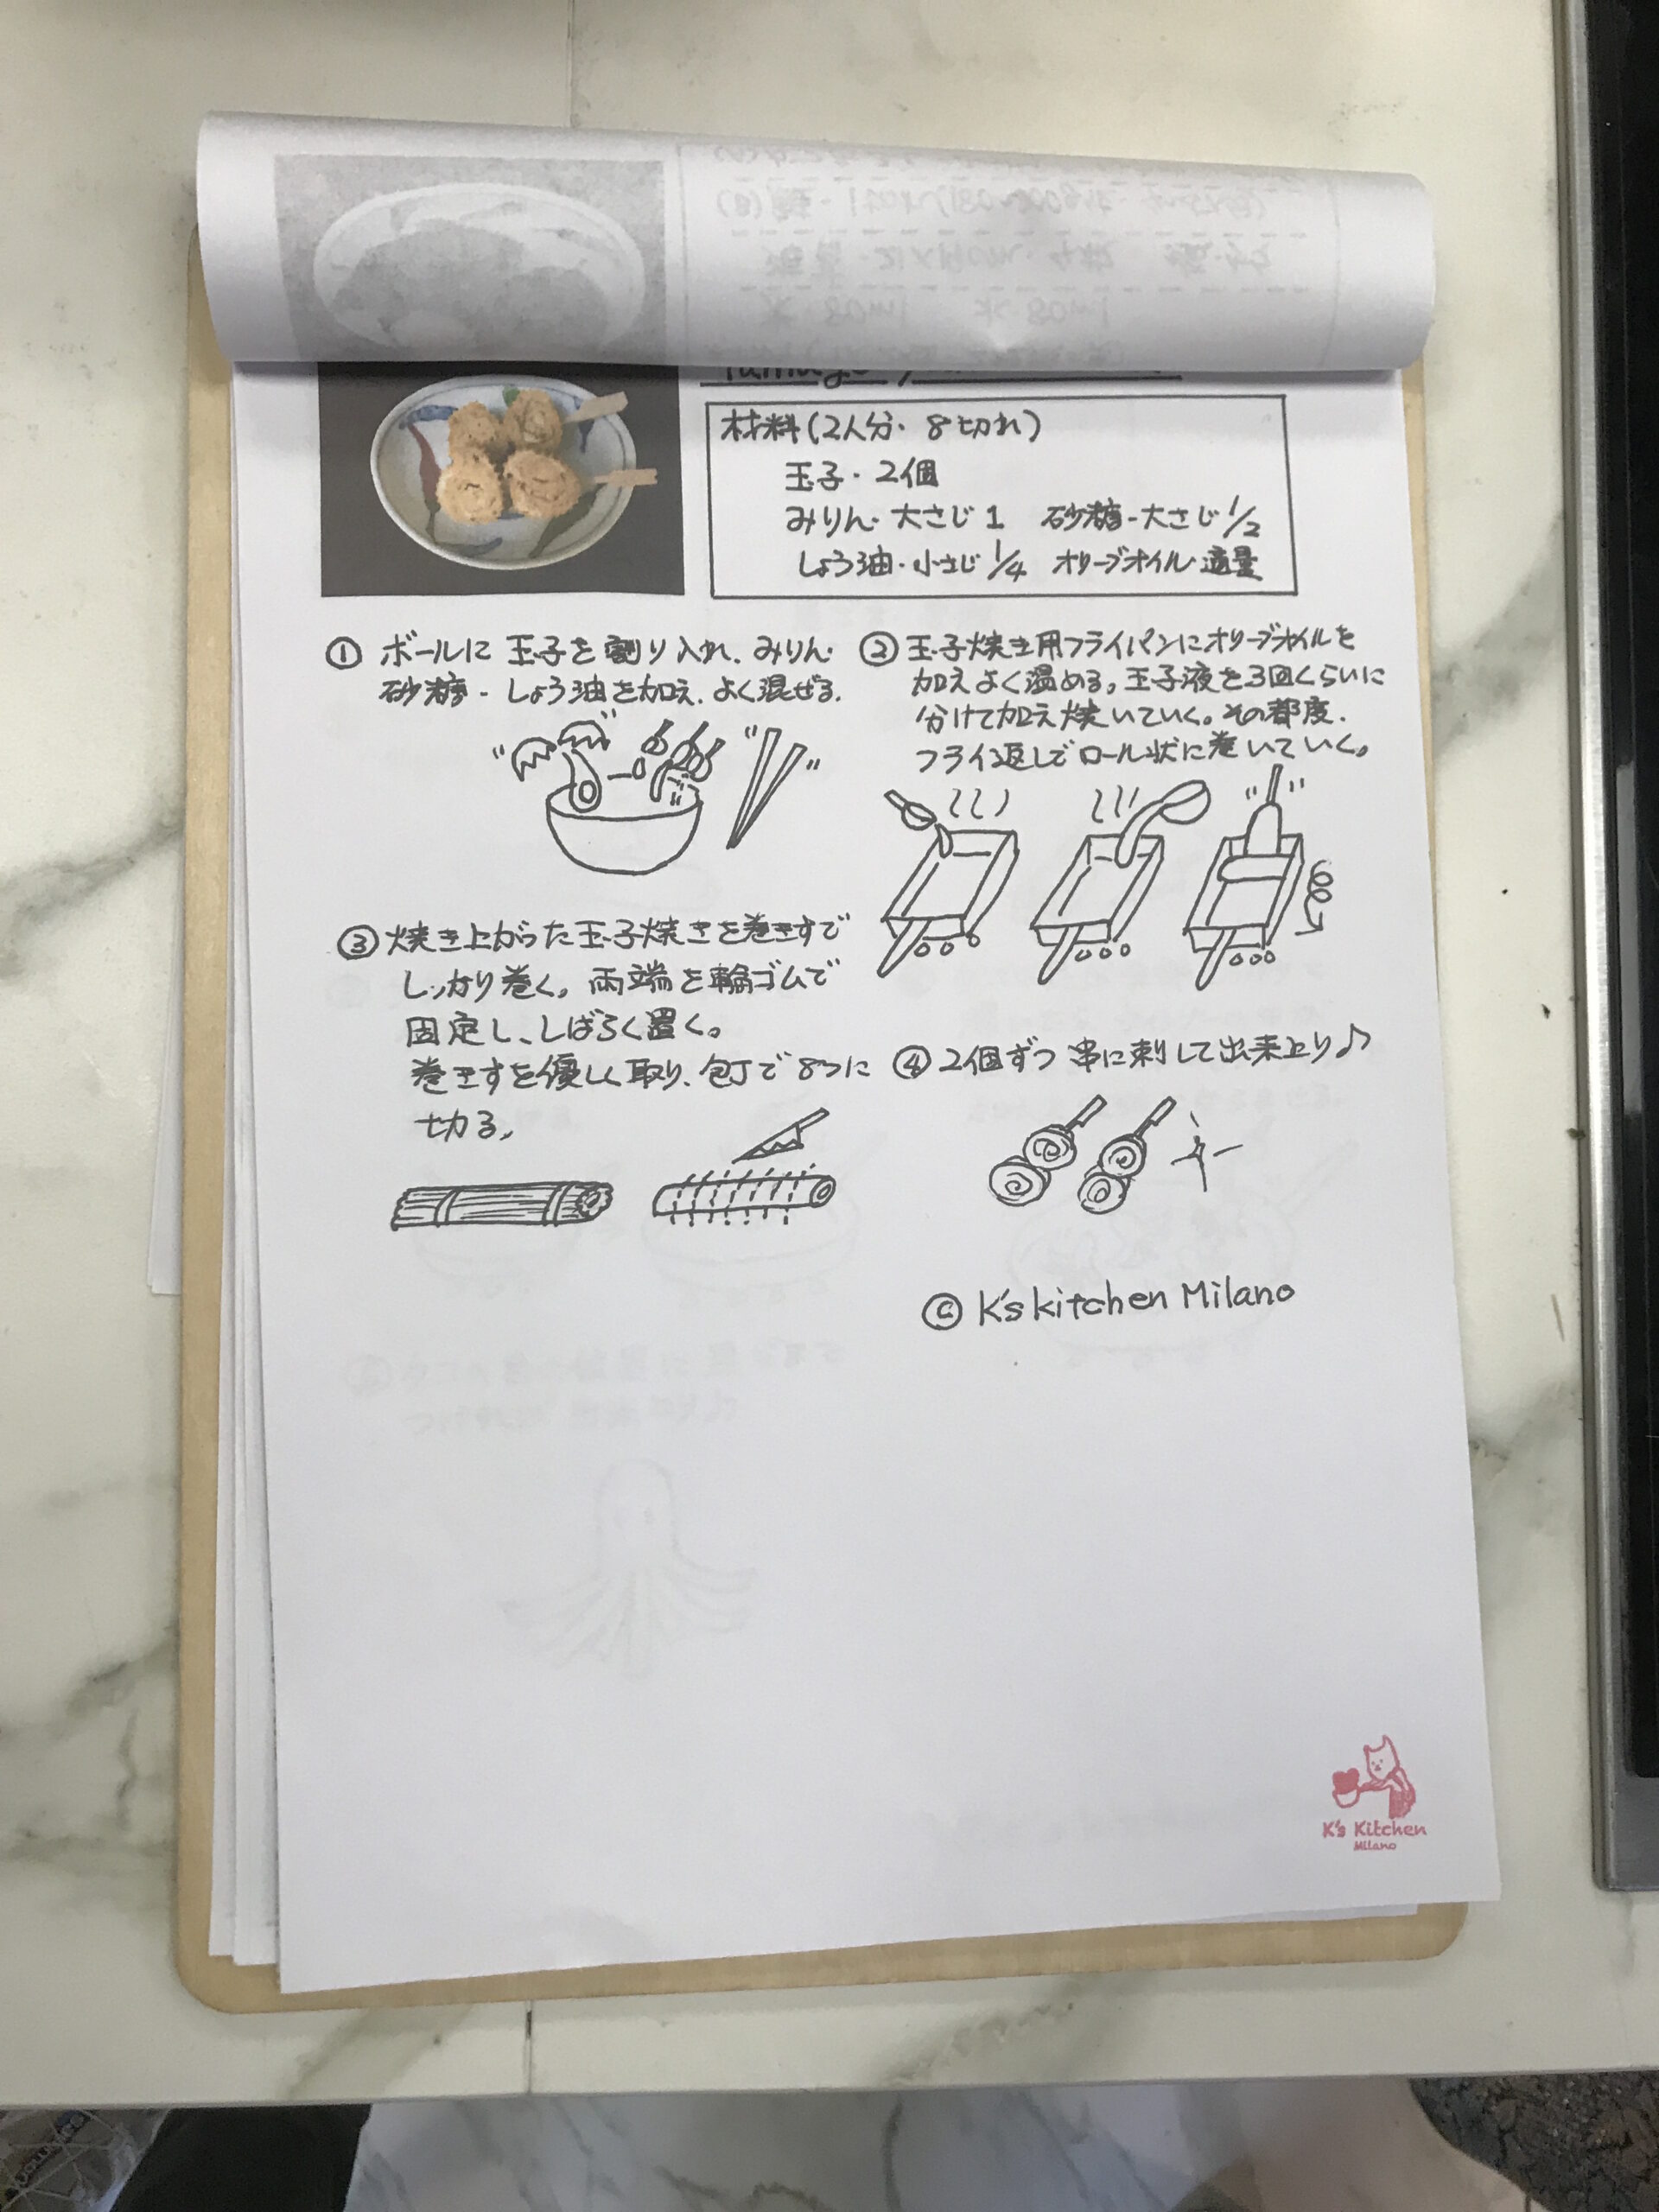 材料(2人分・8切れ)
玉子・2個
みりん・大さじ1 砂糖-大さじ1/2
しょう油・小さじ1/4 オリーブオイル・適量
① ボールに玉子を割り入れ、みりん・
砂糖・しょう油を加え、よく混ぜる。
② 玉子焼き用フライパンにオリーブオイルを
加えよく温める。玉子液を3回くらいに
分けて加え焼いていく。その都度、
フライ返しでロール状に巻いていく。
③ 焼き上がった玉子焼きを巻きすで
しっかり巻く。両端を輪ゴムで
固定し、しばらく置く。
巻きすを優しく取り、包丁で8つに
切る。
④ 2個ずつ串に刺して出来上り♪
© K's kitchen Milano
K's Kitchen
Milano